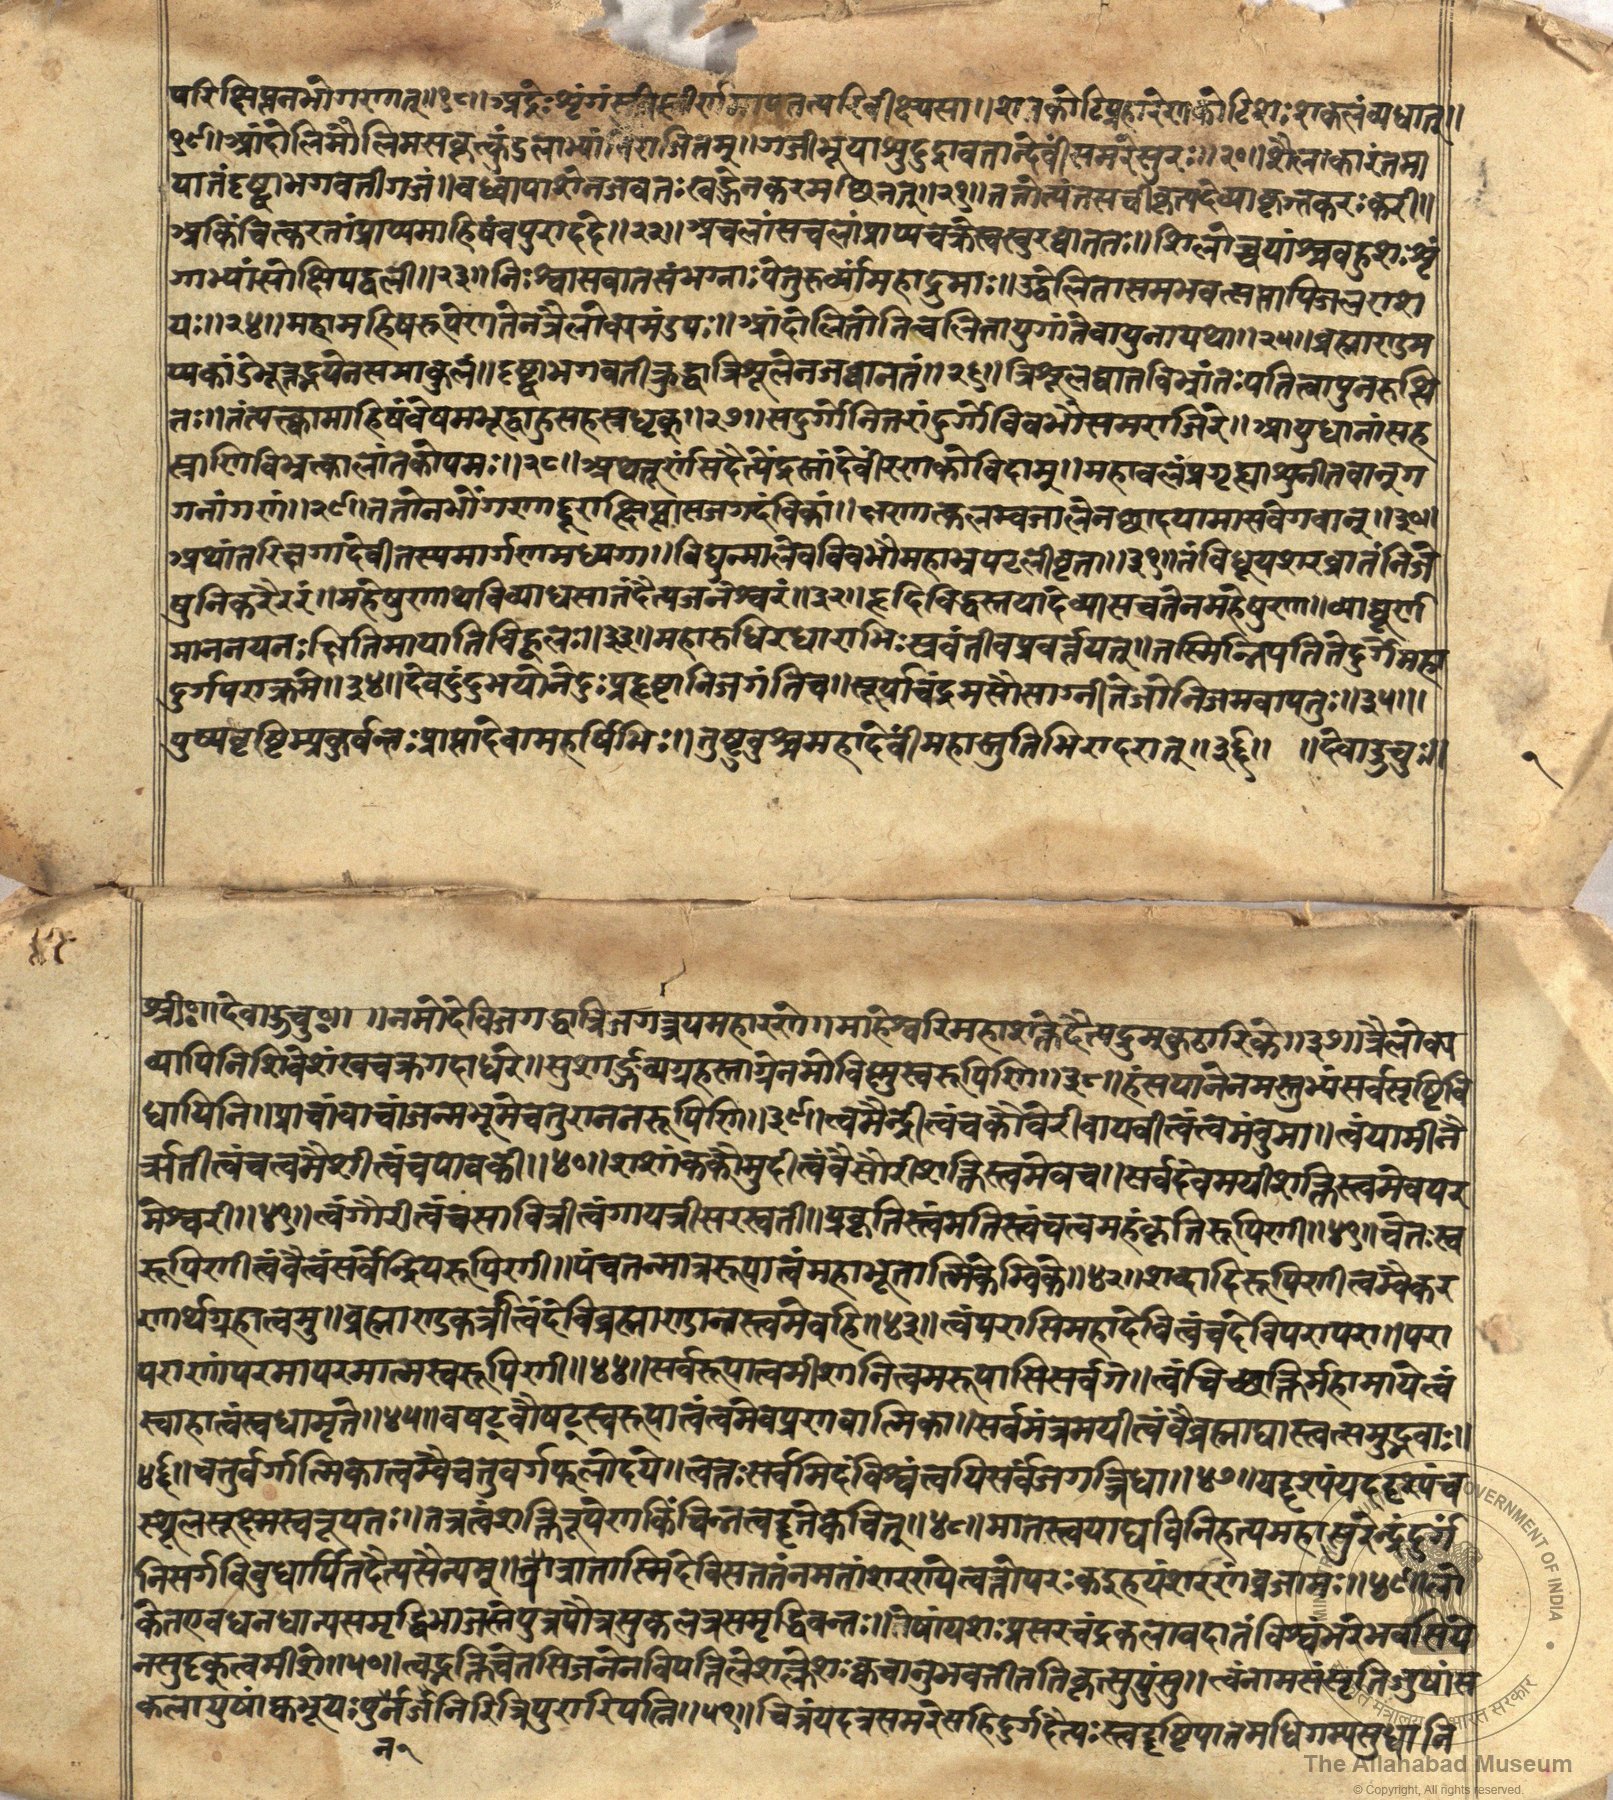 परिक्षिप्तनभोंगरणात्॥१८॥अद्रेःशृंगं परिवीक्ष्यसा॥शतकोटिप्रहारेणकोटिशःशकलंव्यधात्॥
१९॥आंदोलिमौलिमसकृत्कुंडलाभ्यांविराजितम्॥गजीभूयाशुदुद्रावतान्देवींसमरेसुरः॥२०॥शैलाकारंतमा
यातंदृष्ट्वाभगवतीगजं॥वध्वापाशेनजवतःखड्गेनकरमछिनत्॥२१॥ततोत्यंतसचीत्कृत्यदेव्याकृत्तकरःकरी॥
अकिंचित्करतांप्राप्यमाहिषंवपुराददे॥२२॥अचलांसचलांप्राप्यचक्रेस्वखुरघाततः॥शिलोच्चयांश्चवहुशःशृं
गाभ्यांसोक्षिपद्वली॥२३॥निःश्वासवातसंभग्नाःपेतुरुर्व्यांमहाद्रुमाः॥उद्वेलितासमभवत्सप्तापिजलराश
यः॥२४॥महामहिषरुपेणतेनत्रैलोक्यमंडपः॥आंदोलितोतिवलिनायुगांतेवायुनायथा॥२५॥ब्रह्माण्डम
प्यकांडेभूत्तद्भयेनसमाकुलं॥दृष्ट्वाभगवतीक्रुद्धात्रिशूलेनजघानतं॥२६॥त्रिशूलघातविभ्रांतःपतित्वापुनरुत्थि
तः॥तंत्यक्त्वामाहिषंवेषमभूद्वाहुसहस्रधृक्॥२७॥सदुर्गोनितरांदुर्गोविवभौसमराजिरे॥आयुधानांसह
स्राणिविभ्रत्कालांतकोपमः॥२८॥अथतूर्णंसदैत्येंद्रस्तांदेवींरणकोविदाम्॥महावलंप्रगृह्याशुनीतवान्ग
गनांगणं॥२९॥ततोनभोंगणाद्दूरात्क्षिप्त्वासजगदंविकां॥क्षणात्कलम्वजालेनछादयामासवेगवान्॥३०॥
अथांतरिक्षगादेवीतस्यमार्गणमध्यगा॥विद्युन्मालेवविवभौमहाभ्रपटलीवृता॥३१॥तंविधूयशरव्रातंनिजे
षुनिकरैररं॥महेषुणाथविव्याधसातंदैत्यजनेश्वरं॥३२॥हृदिविद्धस्तयादेव्यासचतेनमहेषुणा॥व्याघूर्ण
माननयनःक्षितिमायातिविह्वलः॥३३॥महारुधिरधाराभिःस्रवंतीवप्रवर्त्तयत्॥तस्मिन्निपतितेदुर्गेमहा
दुर्गपराक्रमे॥३४॥देवदुंदुभयोनेदुःप्रहृष्टानिजगंतिच॥सूर्याचंद्रमसौसाग्नीतेजोनिजमवापतुः॥३५॥
पुष्पवृष्टिम्प्रकुर्वन्तःप्राप्तादेवामहर्षिभिः॥तुष्टुवुश्चमहादेवींमहास्तुतिभिरादरात्॥३६॥ ॥देवाऊचुः॥
श्रीः॥देवाऊचुः॥ ॥नमोदेविजगद्धात्रिजगत्त्रयमहारणे॥माहेश्वरिमहाशक्तेदैत्यद्रुमकुठारिके॥३७॥त्रैलोक्य
व्यापिनिशिवेशंखचक्रगदाधरे॥सुशार्ङ्गव्यग्रहस्ताग्रेनमोविष्णुस्वरूपिणि॥३८॥हंसयानेनमस्तुभ्यंसर्वसृष्टिवि
धायिनि॥प्राचांवाचांजन्मभूमेचतुराननरूपिणि॥३९॥त्वमैन्द्रीत्वंचकौवेरीवायवीत्वंत्वमंवुमा॥त्वंयामीनै
र्ऋतीत्वंचत्वमैशीत्वंचपावकी॥४०॥शशांककौमुदीत्वंवैसौरीशक्तिस्त्वमेवच॥सर्वदेवमयीशक्तिस्त्वमेवपर
मेश्वरी॥४१॥त्वंगौरीत्वंचसावित्रीत्वंगायत्रीसरस्वती॥प्रकृतिस्त्वंमतिस्त्वंचत्वमहंकृतिरूपिणी॥४१॥चेतःस्व
रूपिणीत्वंवैत्वंसर्वेन्द्रियरूपिणी॥पंचतन्मात्ररूपात्वंमहाभूतात्मिकेम्विके॥४२॥शब्दादिरूपिणीत्वम्वैकर
णार्थग्रहात्वमु॥ब्रह्माण्डकर्त्रीत्वंदेविब्रह्माण्डान्तस्त्वमेवहि॥४३॥त्वंपरासिमहादेवित्वंचंदेविपरापरा॥परा
पराणांपरमापरमात्मस्वरूपिणी॥४४॥सर्वरूपात्वमीशानित्वमरूपासिसर्वगे॥त्वंचिच्छक्तिर्महामायेत्वं
स्वाहात्वंस्वधामृते॥४५॥वषट्वौषट्स्वरूपात्वंत्वमेवप्रणवात्मिका॥सर्वमंत्रमयीत्वंवैब्रह्माद्यास्त्वत्समुद्भवाः॥
४६॥चतुर्वर्गात्मिकात्वम्वैचतुवर्गफलोदये॥त्वत्तःसर्वमिदंविश्वंत्वयिसर्वंजगन्निधा॥४७॥यद्दृश्यंयददृश्यंच
स्थूलसूक्ष्मस्वरूपतः॥तत्रत्वंशक्तिरूपेणकिंचिन्नत्वदृतेक्वचित्॥४८॥मातस्त्वयाद्यविनिहत्यमहासुरेन्द्रंदुर्गं
निसर्गविवुधार्पितदैत्यसैन्यम्॥त्रात्रातास्मिदेविसततंनमतांशरण्येत्वत्तोपरःकइहयंशरणंव्रजामः॥४९॥लो
केतएवधनधान्यसमृद्धिभाजस्तेपुत्रपौत्रसुकलत्रसमृद्धिवन्तः॥तेषांयशःप्रसरचंद्रकलावदातंविश्वंभरेभवसिये
नसुदृक्त्वमीशे॥५०॥त्वद्भक्तिचेतसिजनेनविपत्तिलेशक्लेशःक्ववानुभवतीततिकृत्सुपुंसु॥त्वंनामसंसृतिजुषांस
कलायुषांक्वभूयःपुनर्जनिरित्रिपुरारिपत्नि॥५१॥चित्रंयदत्रसमरेसहिदुर्गदैत्यःस्त्वदृष्टिपातमधिगम्यसुधानि
The Allahabad Museum
© Copyright, All rights reserved.